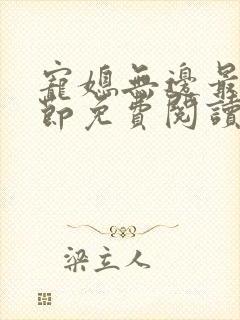 寵媳無邊最
節免費閱讀
梁立人